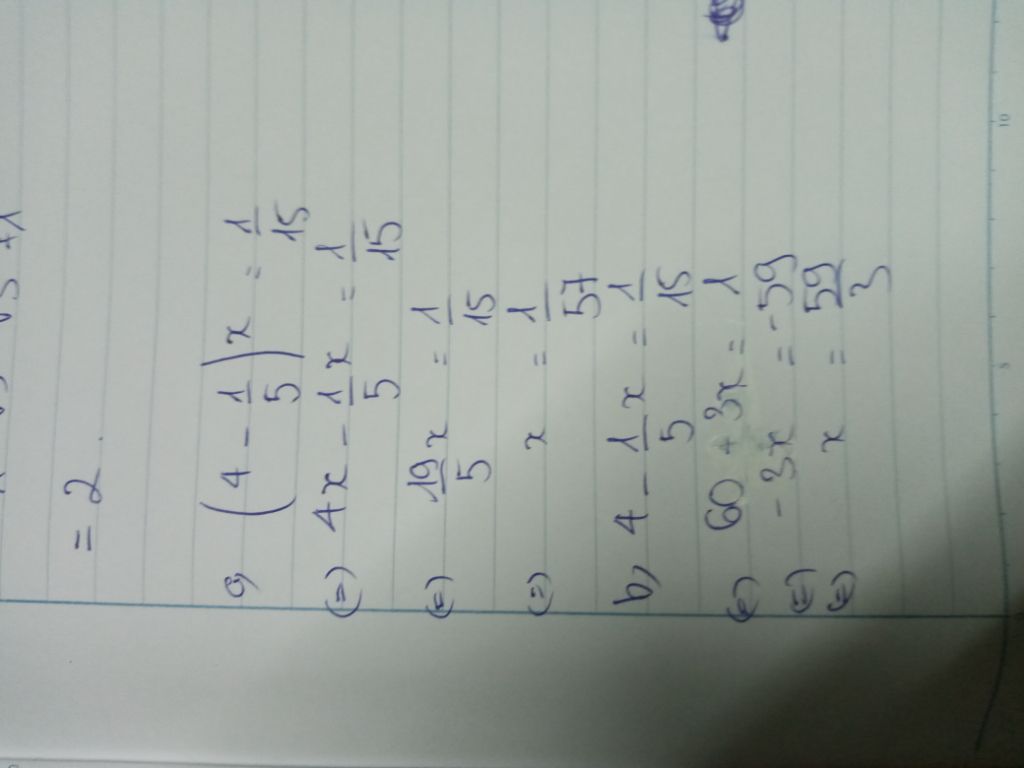 = 2
a) (4 - 1/5) x = 1/15
(=) 4x - 1/5 x = 1/15
(=) 19/5 x = 1/15
(=) x = 1/57
b) 4 - 1/5 x = 1/15
(=) 60 + 3x = 1
(=) - 3x = -59
(=) x = 59/3